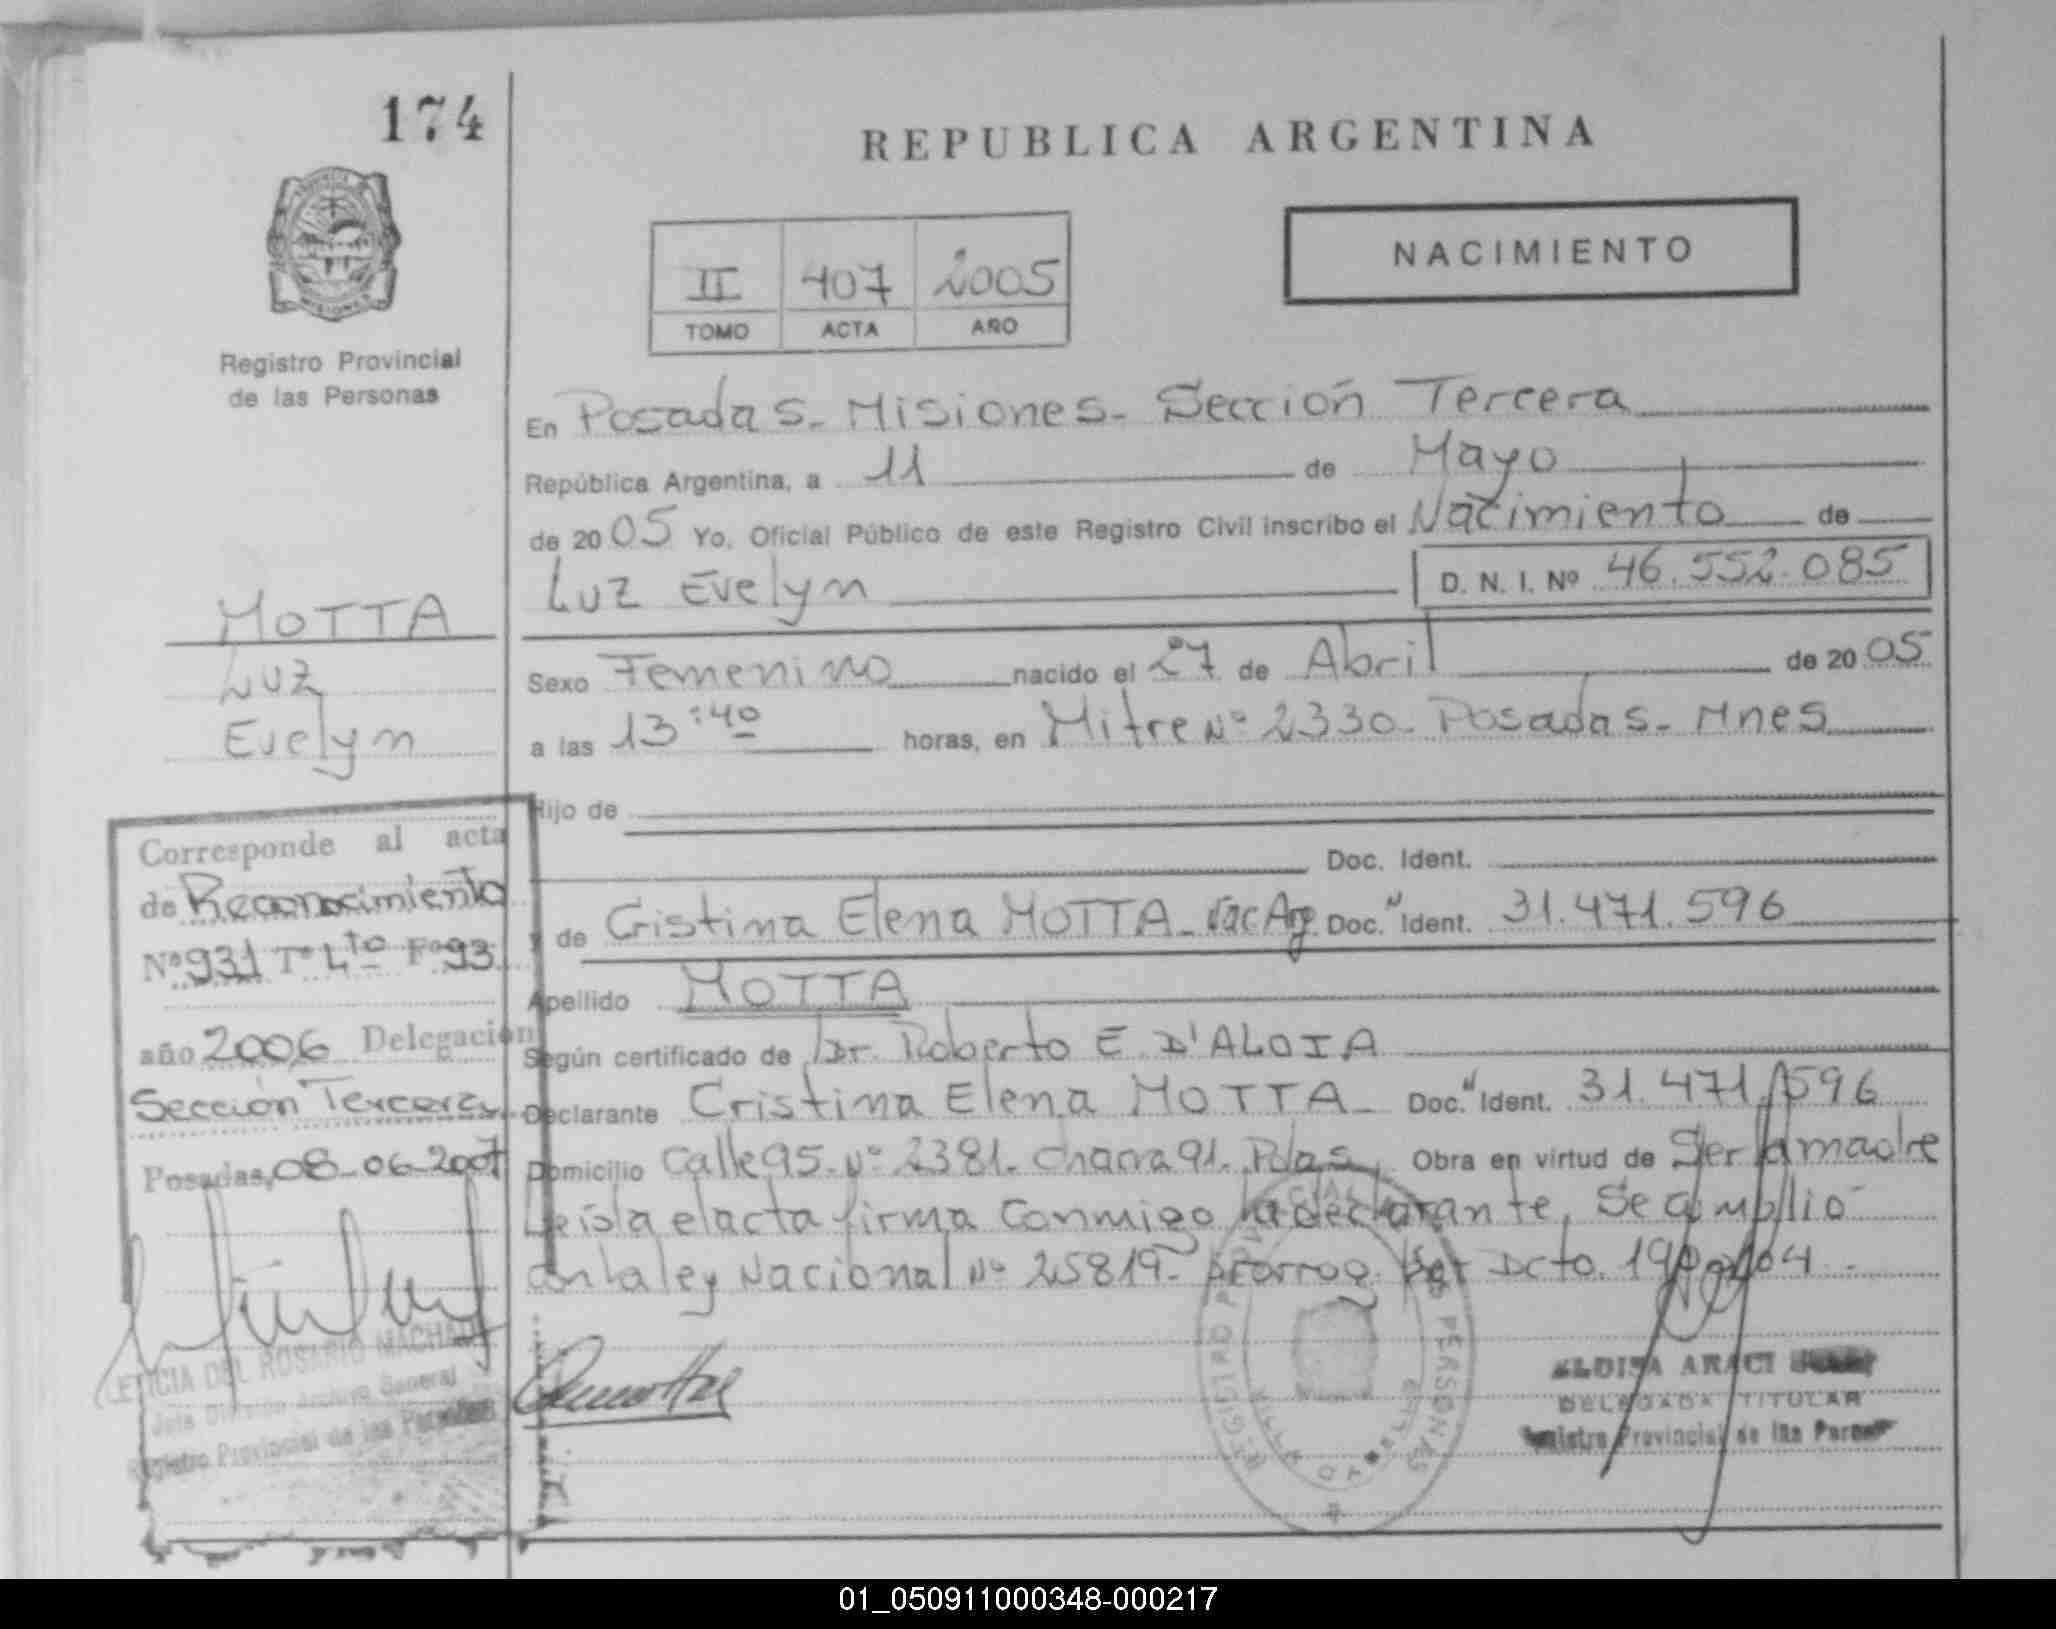 174
REPUBLICA ARGENTINA
NACIMIENTO
II 407 2005
TOMO ACTA AÑO
Registro Provincial
de las Personas
En Posadas. Misiones. Sección Tercera
República Argentina, a 11 de Mayo
de 2005 Yo, Oficial Público de este Registro Civil inscribo el Nacimiento de
Luz Evelyn D. N. I. Nº 46.552.085
MOTTA
Luz
Evelyn
Sexo Femenino nacido el 27 de Abril de 2005
a las 13:40 horas, en Mitre Nº 2330. Posadas. Mnes
Hijo de
Doc. Ident.
y de Cristina Elena MOTTA. Nac Arg Doc. Ident. 31.471.596
Apellido MOTTA
Según certificado de Dr. Roberto E. D'ALOIA
Declarante Cristina Elena MOTTA. Doc. Ident. 31.471.596
Domicilio Calle 95. Nº 2381. Chacra 91. Pdas, Obra en virtud de Ser la madre
Leísla el acta firma Conmigo la declarante, Se cumplió
con la ley Nacional Nº 25819. prorrog. por Dcto.
Corresponde al acta
de Reconocimiento
Nº 931 Tº 4to Fº 93
año 2006 Delegación
Sección Tercera
Posadas, 08-06-2007
LETICIA DEL ROSARIO MACHADO
Jefe División Archivo General
Registro Provincial de las Personas
REGISTRO PROVINCIAL DE LAS PERSONAS
ELOISA ARACI
DELEGADA TITULAR
Registro Provincial de las Personas
01_050911000348-000217